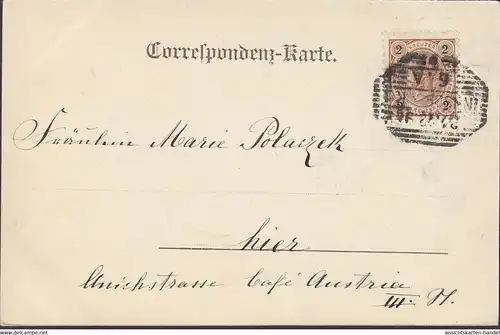 Correspondenz-Karte.
2 KREUZER 2
2 2
Fräulein Marie Polaczek
hier
Anichstrasse Café Austria
III. St.
ansichtskarten-handel